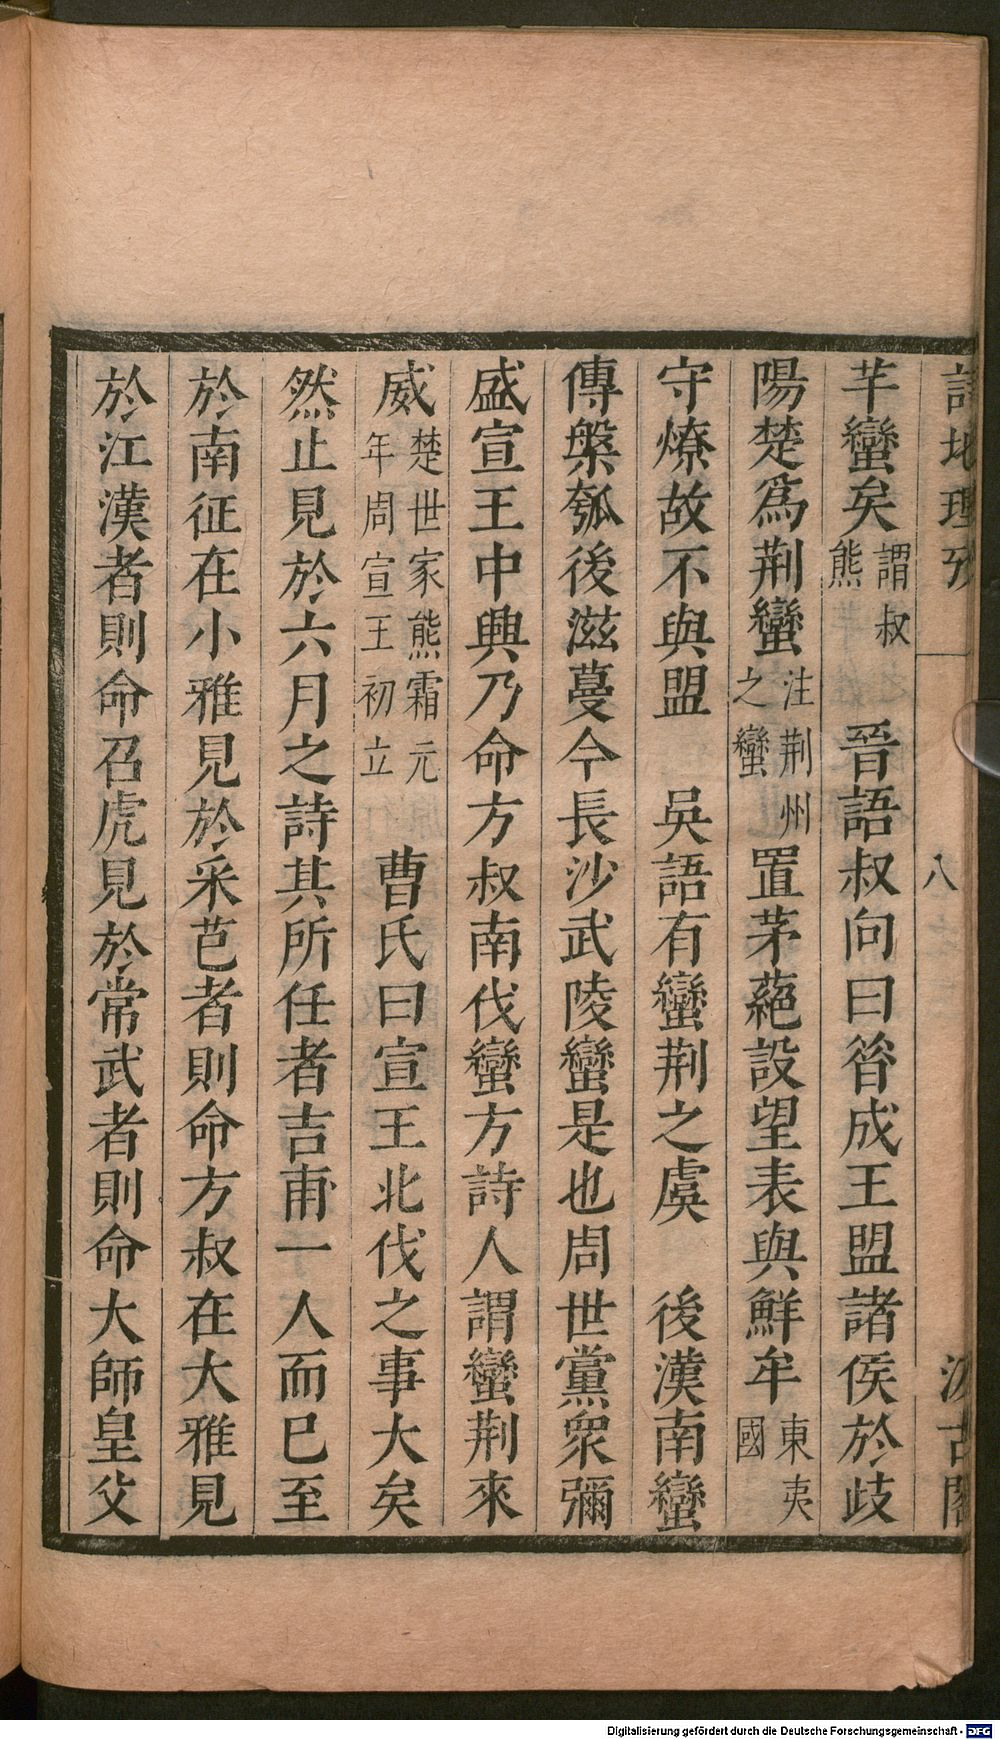 詩地理攷 八 汲古閣
芊蠻矣謂叔熊 晉語叔向曰昝成王盟諸侯於歧
陽楚爲荆蠻注荆州之蠻置茅蕝設望表與鮮牟東夷國
守燎故不與盟 吳語有蠻荆之虞 後漢南蠻
傳槃瓠後滋蔓今長沙武陵蠻是也周世黨衆彌
盛宣王中興乃命方叔南伐蠻方詩人謂蠻荆來
威楚世家熊霜元年周宣王初立 曹氏曰宣王北伐之事大矣
然止見於六月之詩其所任者吉甫一人而已至
於南征在小雅見於采芑者則命方叔在大雅見
於江漢者則命召虎見於常武者則命大師皇父
Digitalisierung gefördert durch die Deutsche Forschungsgemeinschaft - DFG